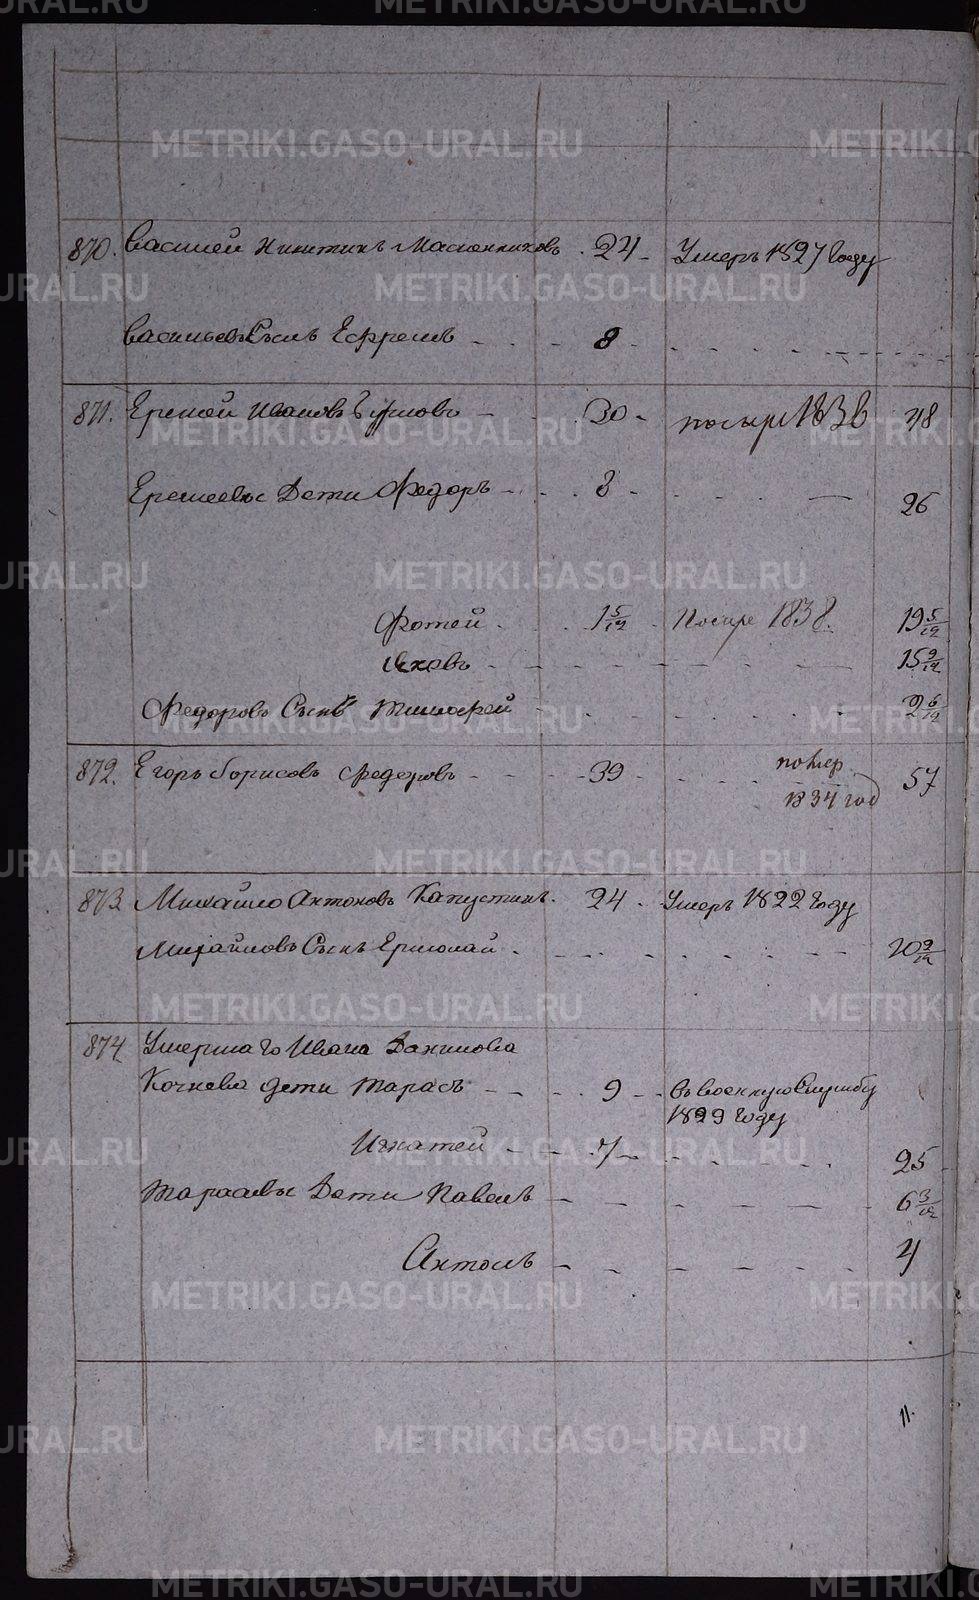 METRIKI.GASO-URAL.RU
870. Василей Никитинъ Масленниковъ 24 Умеръ 1827 Году
Васильевъ Сынъ Ефремъ 8
871. Еремей Ивановъ 30 1838 48
Еремеевы Дети Федоръ 8 26
Фотей 1 5/12 1838. 19 5/12
Яковъ 15 9/12
Федоровъ Сынъ Тимофей 2 6/12
872. Егоръ Борисовъ Федоровъ 39 помер 57
1834 год
873 Михайло Антоновъ Капустинъ 24 Умеръ 1822 Году
Михайловъ Сынъ Ермолай 20 9/12
874 Умершаго Ивана Данилова
Кочнева Дети Тарасъ 9 въ военную Службу
1829 Году
Игнатей 7 25
Тарасовы Дети Павелъ 6 3/12
Антонъ 4
11.